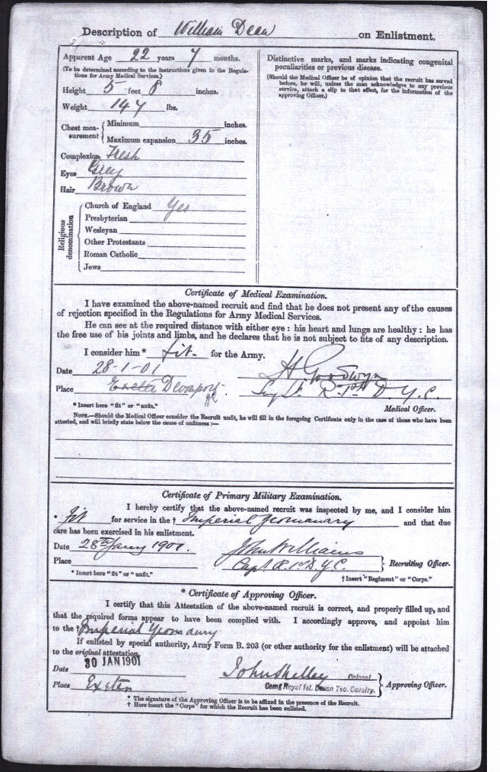 Description of William Dean on Enlistment.
Apparent Age 22 years 7 months.
(To be determined according to the instructions given in the Regulations for Army Medical Services.)
Height 5 feet 8 inches.
Weight 147 lbs.
Chest measurement { Minimum inches.
Maximum expansion 35 inches.
Complexion Fresh
Eyes Grey
Hair Brown
Religious denomination
Church of England Yes
Presbyterian
Wesleyan
Other Protestants
Roman Catholic
Jews
Distinctive marks, and marks indicating congenital
peculiarities or previous disease.
(Should the Medical Officer be of opinion that the recruit has served
before, he will, unless the man acknowledges to any previous
service, attach a slip to that effect, for the information of the
approving Officer.)
Certificate of Medical Examination.
I have examined the above-named recruit and find that he does not present any of the causes
of rejection specified in the Regulations for Army Medical Services.
He can see at the required distance with either eye: his heart and lungs are healthy: he has
the free use of his joints and limbs, and he declares that he is not subject to fits of any description.
I consider him * fit. for the Army.
Date 28-1-01
Place Devonport
Medical Officer.
* Insert here "fit" or "unfit."
NOTE.—Should the Medical Officer consider the Recruit unfit, he will fill in the foregoing Certificate only in the case of those who have been
attested, and will briefly state below the cause of unfitness:—
Certificate of Primary Military Examination.
I hereby certify that the above-named recruit was inspected by me, and I consider him
* Fit for service in the † Imperial Yeomanry and that due
care has been exercised in his enlistment.
Date 28th Jany 1901. John Williams
Place Capt R.1.D.Y.C. } Recruiting Officer.
* Insert here "fit" or "unfit." † Insert "Regiment" or "Corps."
* Certificate of Approving Officer.
I certify that this Attestation of the above-named recruit is correct, and properly filled up, and
that the required forms appear to have been complied with. I accordingly approve, and appoint him
to the † Imperial Yeomanry
If enlisted by special authority, Army Form B. 203 (or other authority for the enlistment) will be attached
to the original attestation.
Date 30 JAN 1901 John Shelley Colonel
Place Exeter Comg Royal 1st. Devon Yeo. Cavalry. } Approving Officer.
* The signature of the Approving Officer is to be affixed in the presence of the Recruit.
† Here insert the "Corps" for which the Recruit has been enlisted.